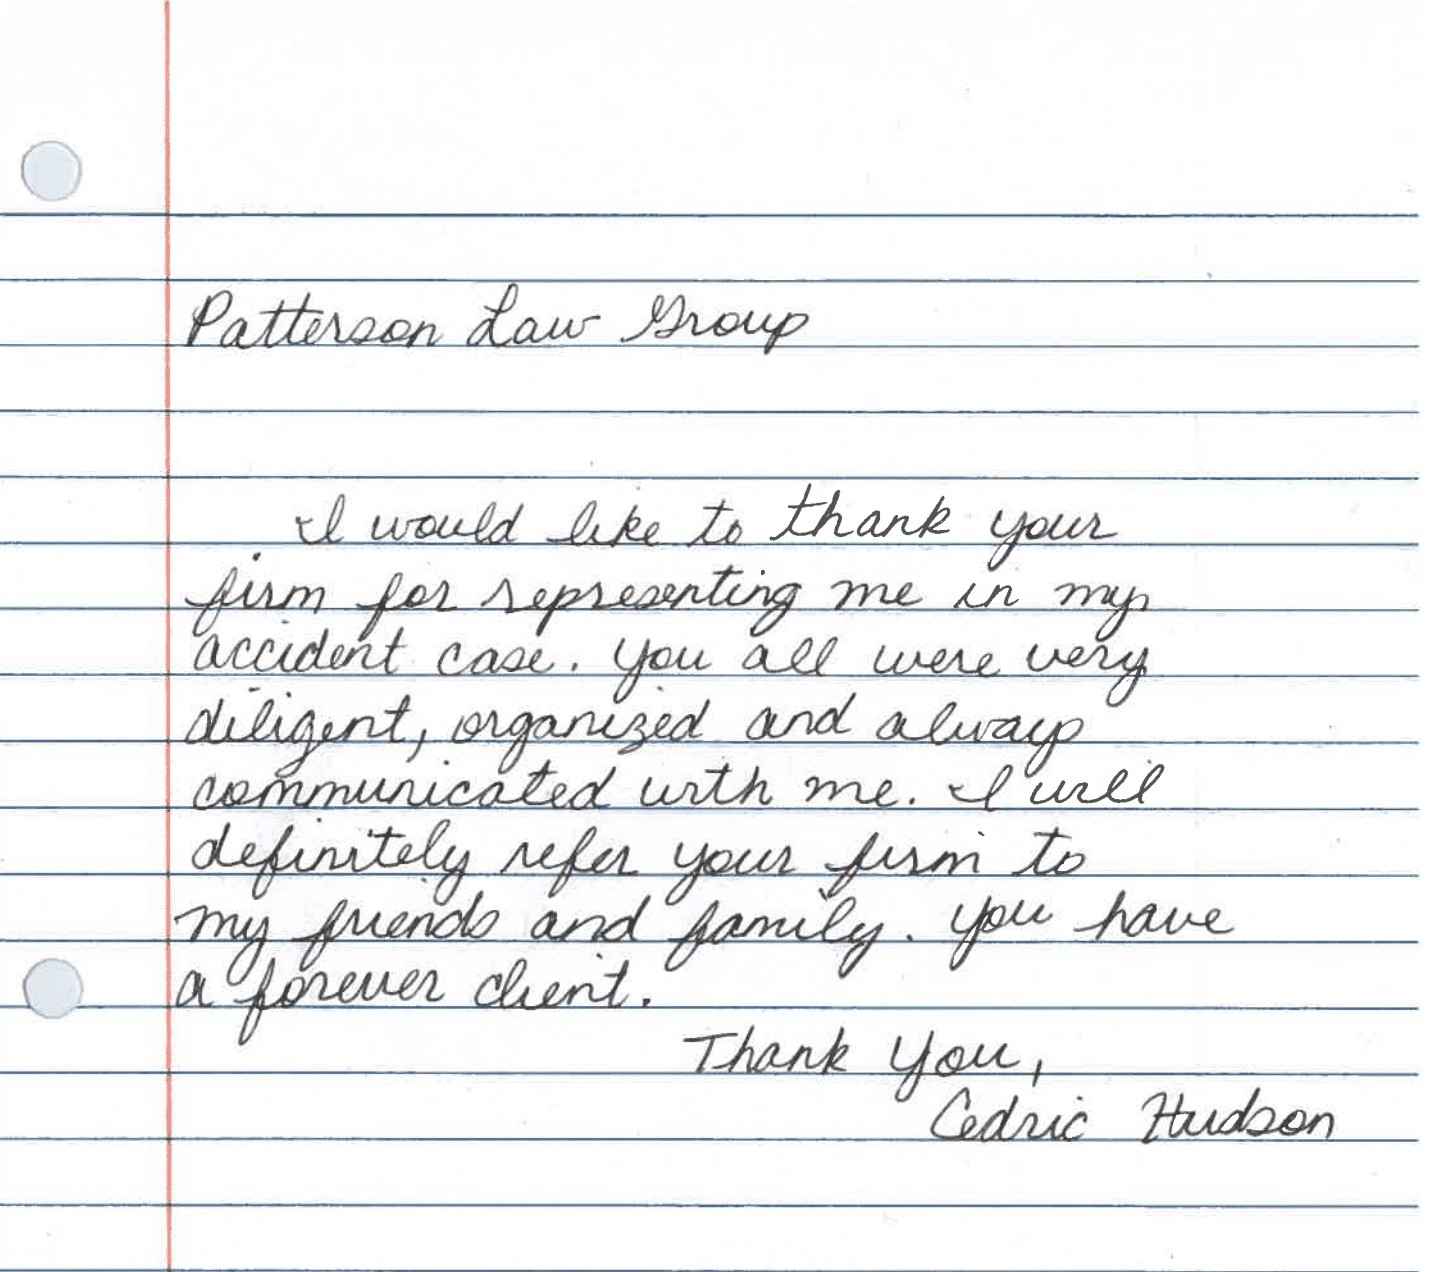 Patterson Law Group
I would like to thank your
firm for representing me in my
accident case. You all were very
diligent, organized and always
communicated with me. I will
definitely refer your firm to
my friends and family. You have
a forever client.
Thank You,
Cedric Hudson